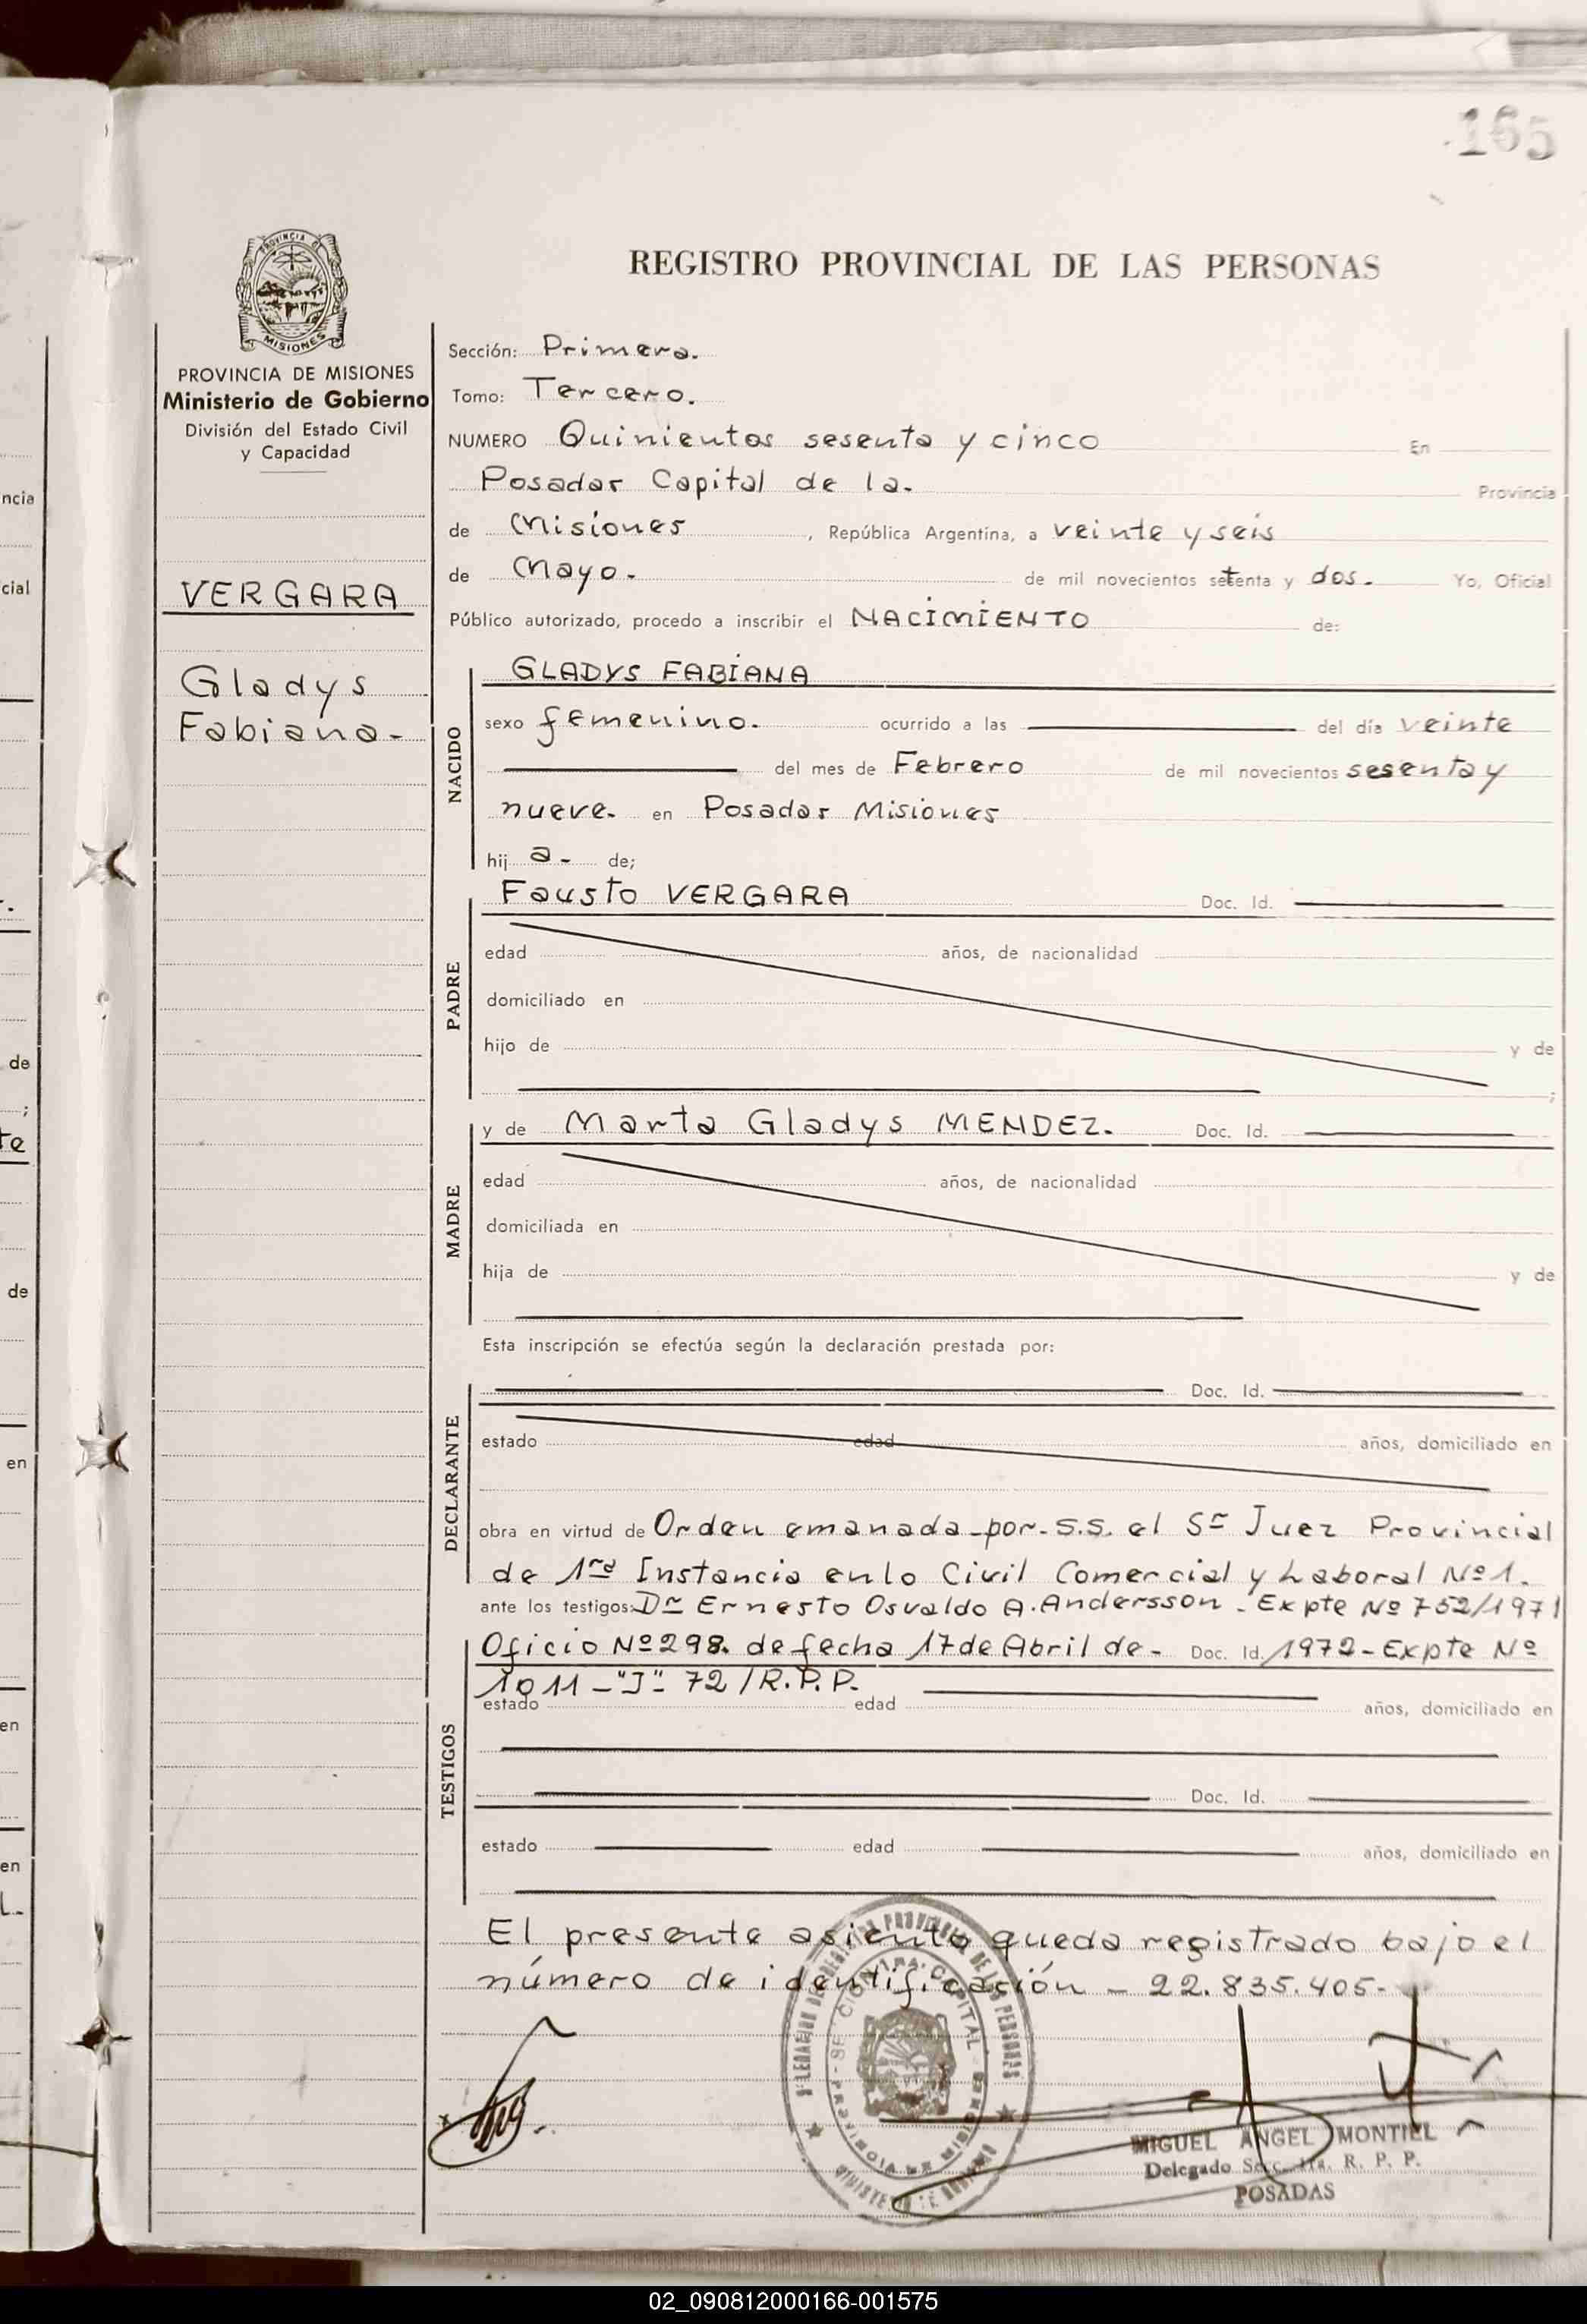 165
PROVINCIA DE MISIONES
REGISTRO PROVINCIAL DE LAS PERSONAS
PROVINCIA DE MISIONES
Ministerio de Gobierno
División del Estado Civil
y Capacidad
VERGARA
Gladys
Fabiana-
Sección: Primera.
Tomo: Tercero.
NUMERO Quinientos sesenta y cinco En
Posadas Capital de la. Provincia
de Misiones, República Argentina, a veinte y seis
de Mayo. de mil novecientos setenta y dos. Yo, Oficial
Público autorizado, procedo a inscribir el NACIMIENTO de:
NACIDO
GLADYS FABIANA
sexo femenino. ocurrido a las del día veinte
del mes de Febrero de mil novecientos sesenta y
nueve. en Posadas Misiones
hij a- de;
PADRE
Fausto VERGARA Doc. Id.
edad años, de nacionalidad
domiciliado en
hijo de y de
;
MADRE
y de Marta Gladys MENDEZ. Doc. Id.
edad años, de nacionalidad
domiciliada en
hija de y de
Esta inscripción se efectúa según la declaración prestada por:
DECLARANTE
Doc. Id.
estado edad años, domiciliado en
obra en virtud de Orden emanada-por-S.S. el Sr Juez Provincial
de 1ra Instancia en lo Civil Comercial y Laboral Nº1.
ante los testigos: Dr Ernesto Osvaldo A. Andersson - Expte Nº 752/1971
TESTIGOS
Oficio Nº 298. de fecha 17 de Abril de- Doc. Id. 1972-Expte Nº
1011-"J"- 72/R.P.P.
estado edad años, domiciliado en
Doc. Id.
estado edad años, domiciliado en
El presente asiento queda registrado bajo el
número de identificación - 22.835.405-
MIGUEL ANGEL MONTIEL
Delegado Secc. 1ra. R. P. P.
POSADAS
02_090812000166-001575